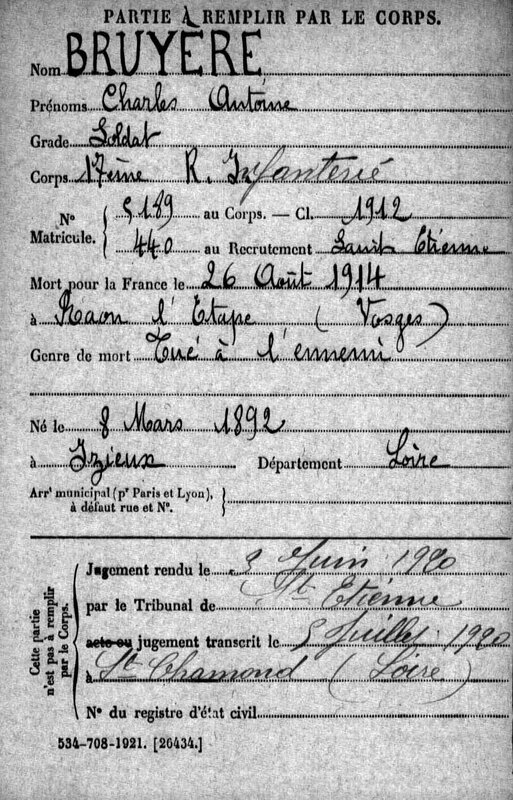 PARTIE À REMPLIR PAR LE CORPS.
Nom BRUYÈRE
Prénoms Charles Antoine
Grade Soldat
Corps 17ème R. Infanterie
N° Matricule. { 5189 au Corps. — Cl. 1912
440 au Recrutement Saint Etienne
Mort pour la France le 26 Août 1914
à Raon l'Etape (Vosges)
Genre de mort Tué à l'ennemi
Né le 8 Mars 1892
à Izieux Département Loire
Arrt municipal (pr Paris et Lyon), à défaut rue et N°.
Cette partie n'est pas à remplir par le Corps.
Jugement rendu le 2 Juin 1920
par le Tribunal de St Etienne
acte ou jugement transcrit le 5 Juillet 1920
à St Chamond (Loire)
N° du registre d'état civil
534-708-1921. [26434.]